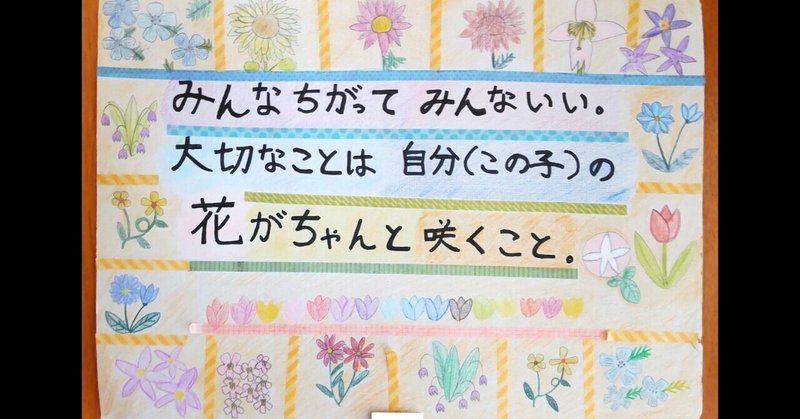 みんなちがって みんないい。
大切なことは 自分(この子)の
花がちゃんと咲くこと。